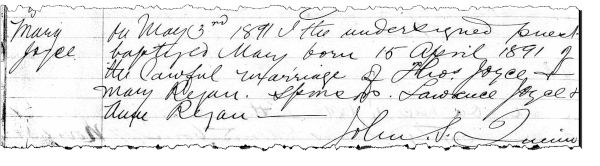 Mary
Joyce
on May 3rd 1891 I the undersigned priest
baptized Mary born 15 April 1891 of
the lawful marriage of Thos Joyce &
Mary Regan. Spons Lawrence Joyce &
Anne Regan
John S.